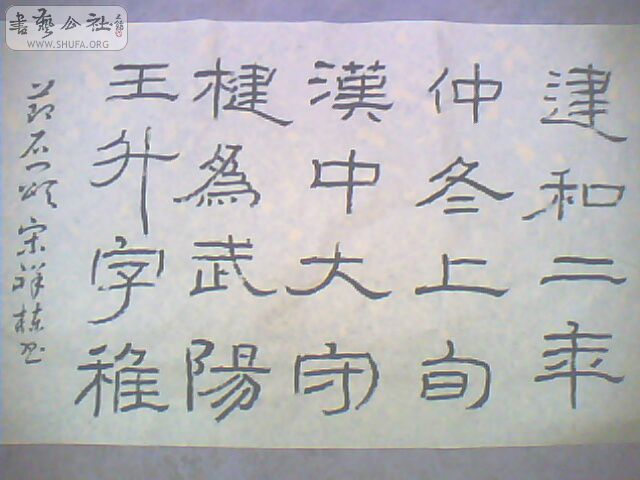 建和二年
仲冬上旬
漢中大守
楗為武陽
王升字稚
节石门颂宋祥栋书
書藝公社
WWW.SHUFA.ORG